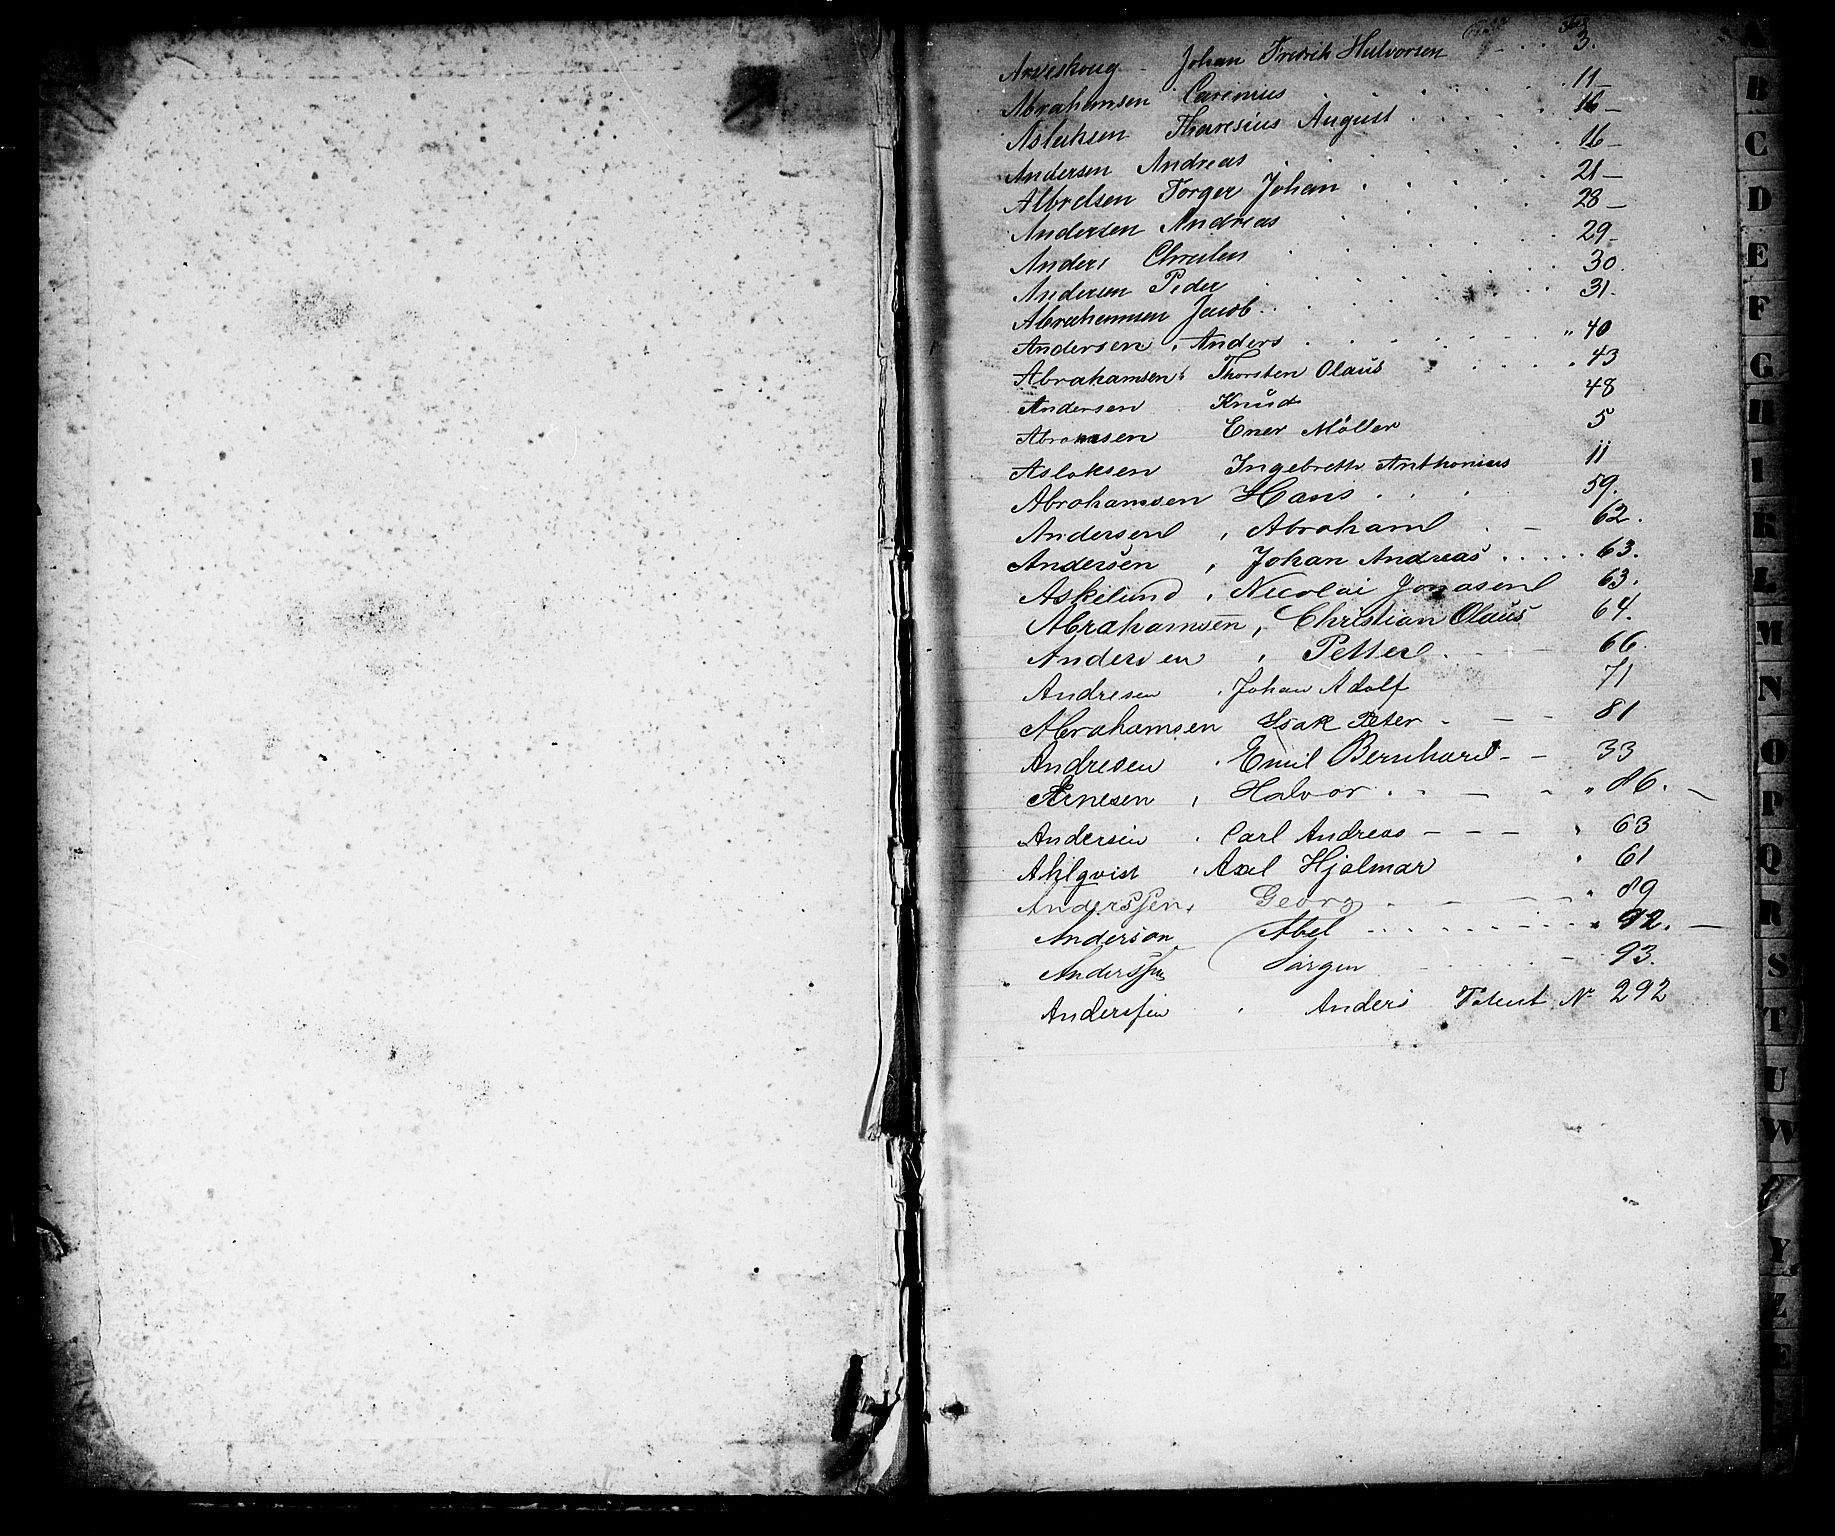 Arveskoug Johan Fredrik Halvorsen 3.
Abrahamsen Carenius 11
Aslaksen Tharesius August 16
Andersen Andreas 16
Albretsen Torger Johan 21
Andersen Andreas 28
Anders 29
Andersen Peder 30.
Abrahamsen Jacob 31.
Andersen, Anders " 40
Abrahamsen Thorsten Olaus 43
Andersen Knud 48
Abramsen Ener Möller 5
Aslaksen Ingebreth Anthonius 11
Abrahamsen Hans 59.
Andersen, Abraham 62.
Andersen, Johan Andreas 63.
Askelund, Nicolai Jonasen 63.
Abrahamsen, Christian Olaus 64.
Andersen, Petter 66.
Andresen, Johan Adolf 71
Abrahamsen Isak Peter 81
Andresen, Emil Bernhard 33
Arnesen, Halvor " 86.
Andersen, Carl Andreas " 63
Ahlqvist, Axel Hjalmar " 61
Anderssen, Georg " 89
Anderson Abel " 92.
Anderssen Jörgen 93.
Anderssen, Anders Patent Nr 292
A
B
C
D
E
F
G
H
I
K
L
M
N
O
P
Q
R
S
T
U
W
Y
Z